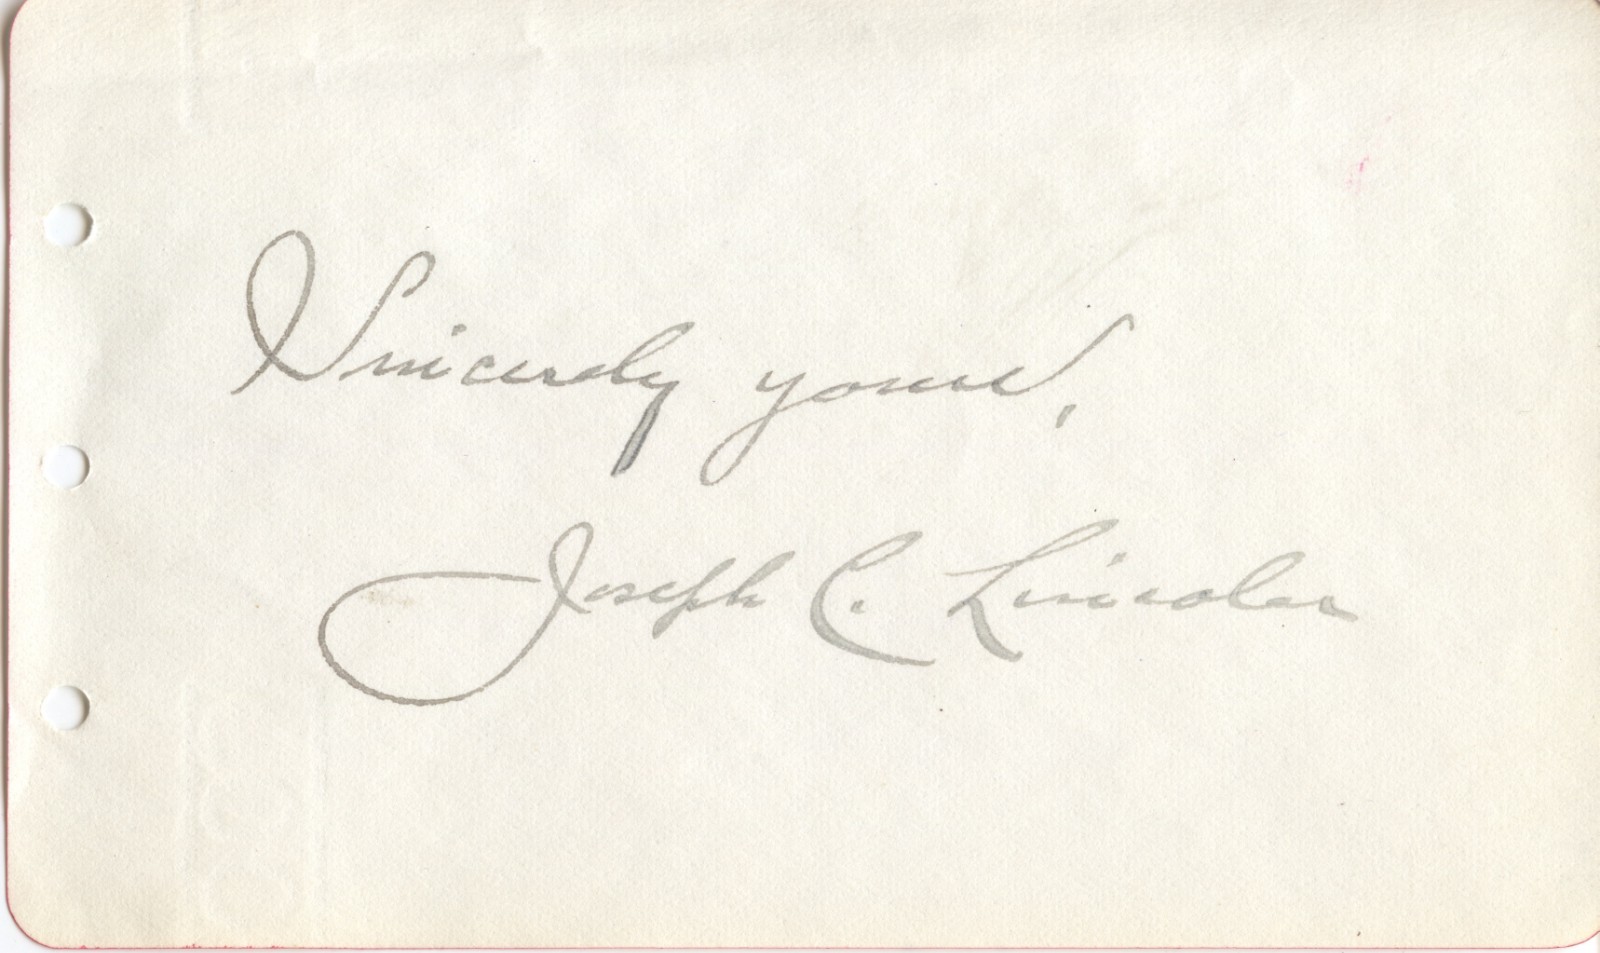 Sincerely yours,
Joseph C. Lincoln